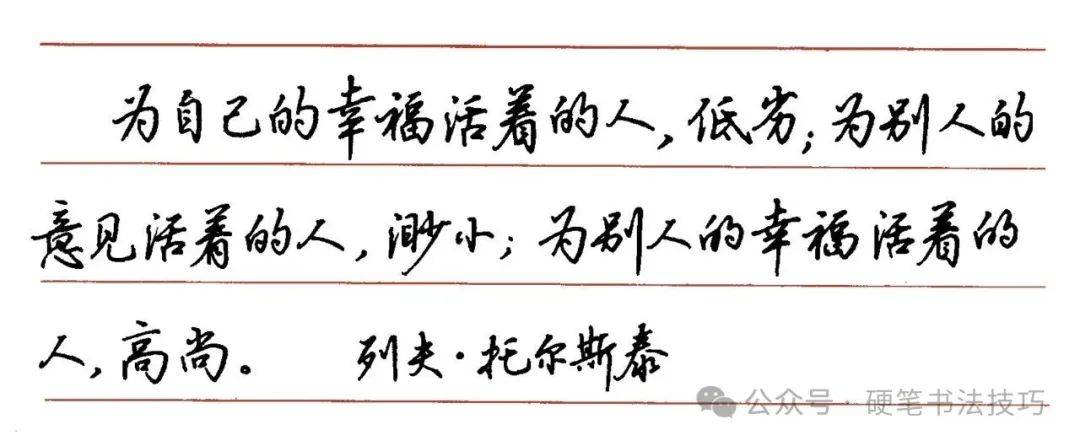 为自己的幸福活着的人,低劣;为别人的
意见活着的人,渺小;为别人的幸福活着的
人,高尚。 列夫·托尔斯泰
公众号·硬笔书法技巧